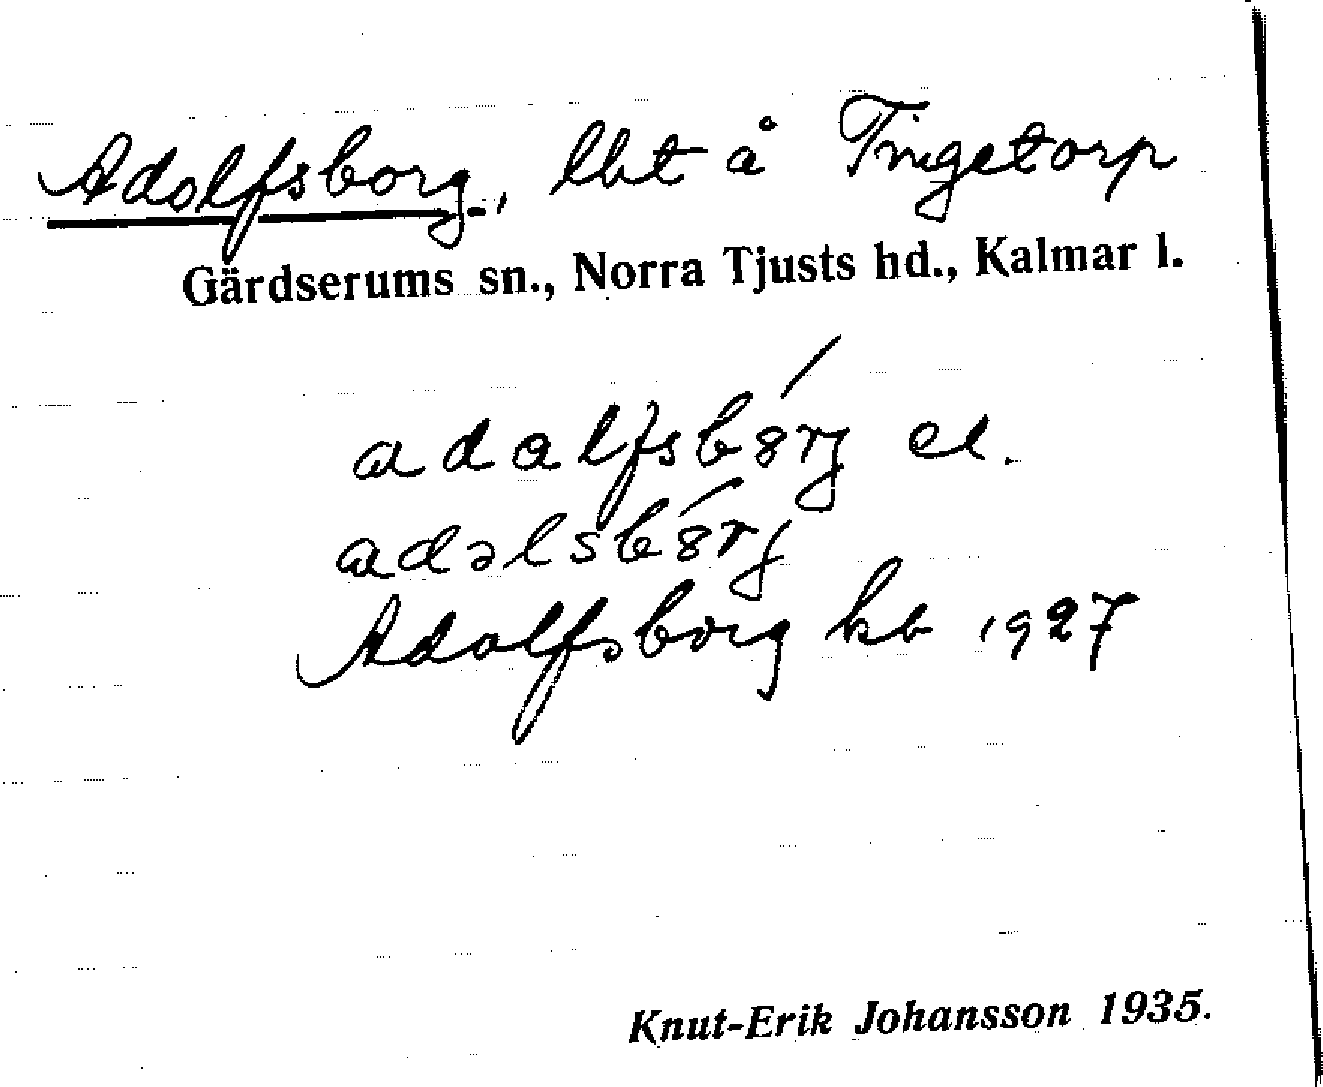 Adolfsborg, lht å Tingetorp
Gärdserums sn., Norra Tjusts hd., Kalmar l.
adalfsbórj el.
adəlsbórj
Adolfsborg kb 1927
Knut-Erik Johansson 1935.